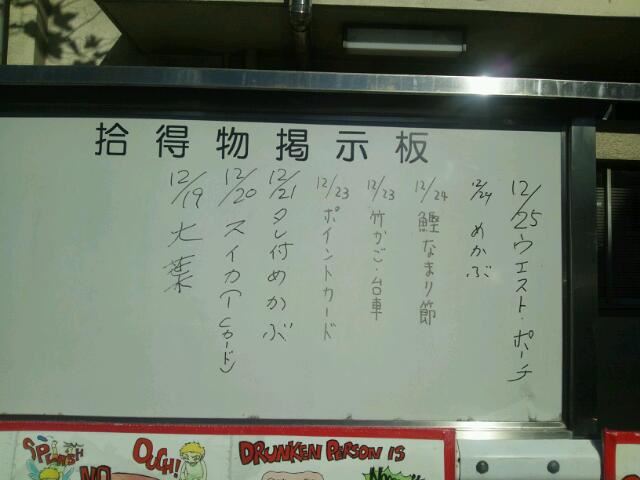 拾得物掲示板
12/25 ウエスト・ポーチ
12/24 めかぶ
12/24 鰹なまり節
12/23 竹かご・台車
12/23 ポイントカード
12/21 タレ付めかぶ
12/20 スイカ(ICカード)
12/19 大葉
SPLOOSH
OUCH!
NO
DRUNKEN PERSON IS